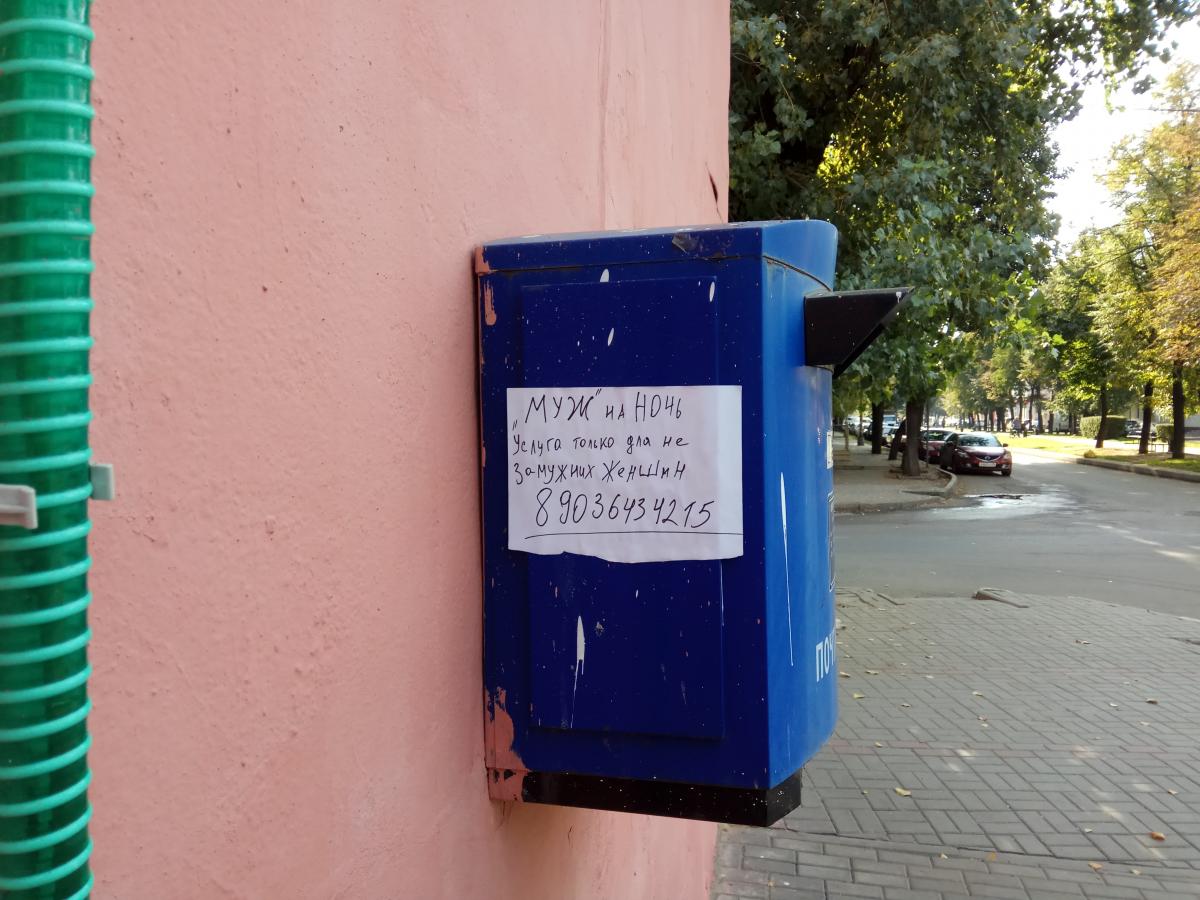 „МУЖ" на НОЧЬ
Услуга только для не
Замужних Женщин
89036434215
ПОЧ